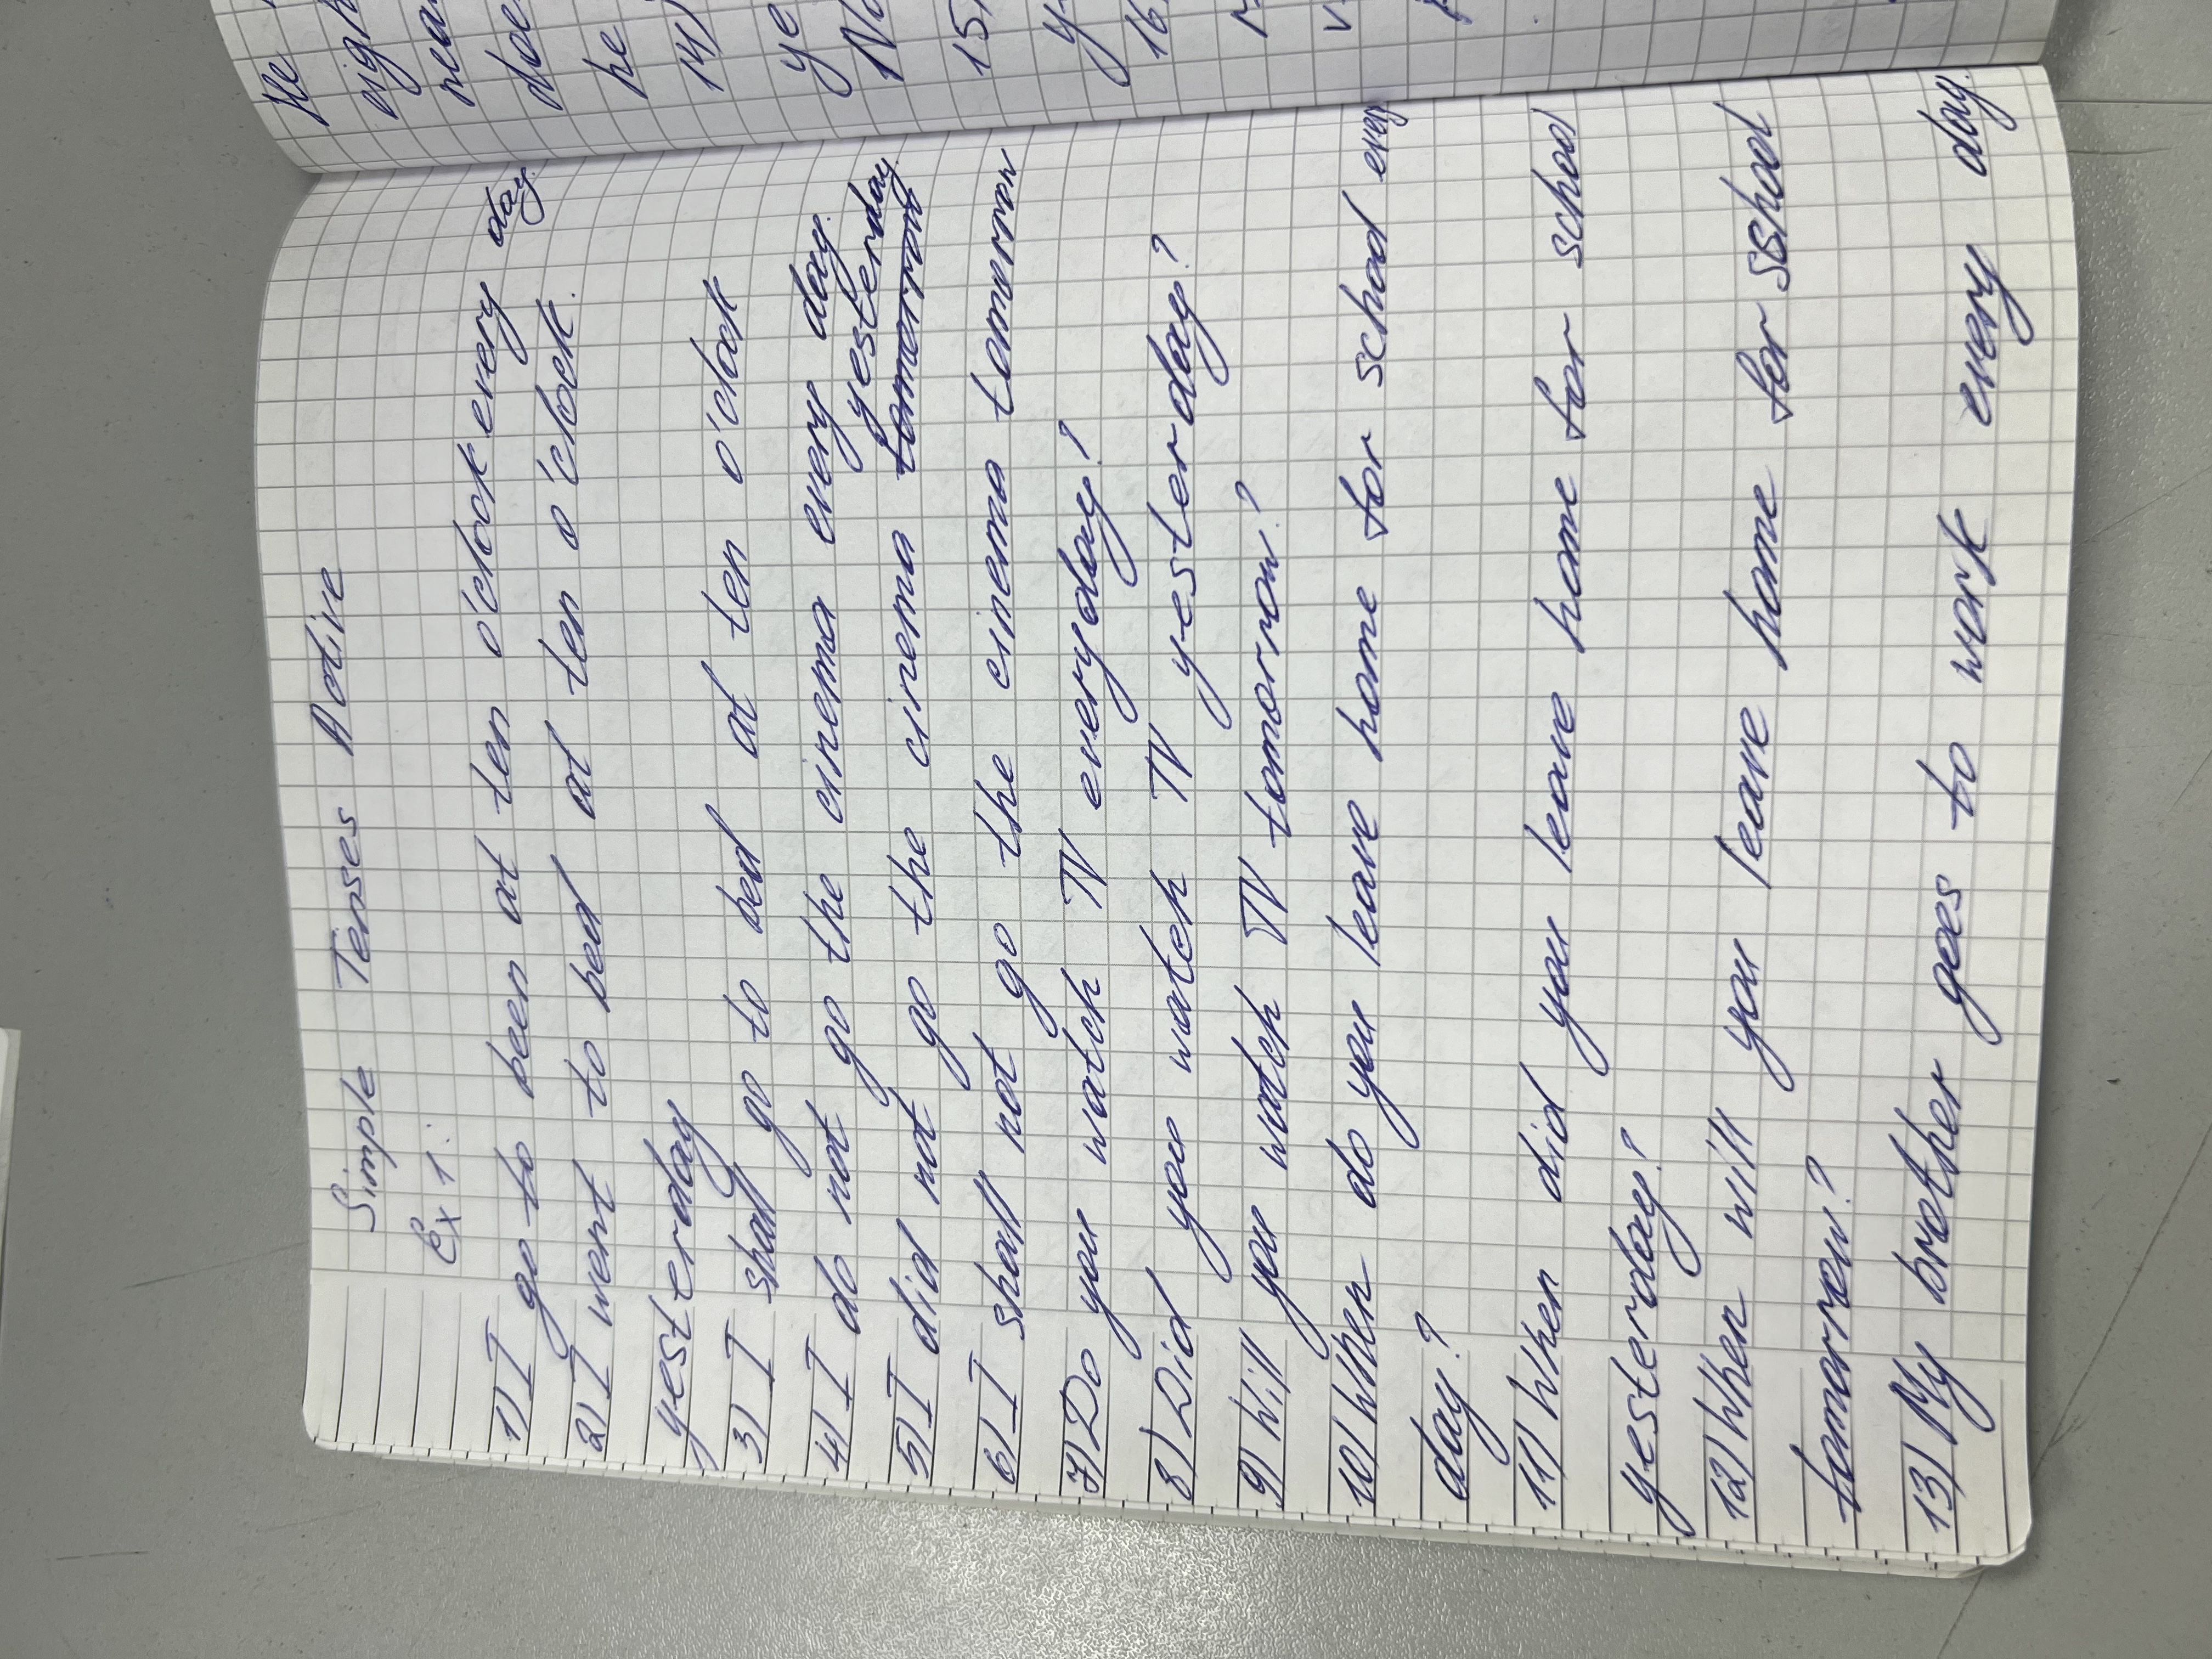 Simple Tenses Active
Ex 1:
1) I go to been at ten o'clock every day
2) I went to bed at ten o'clock.
yesterday
3) I shall go to bed at ten o'clock
4) I do not go the cinema every day.
5) I did not go the cinema tomorrow yesterday.
6) I shall not go the cinema tomorrow
7) Do you watch TV everyday?
8) Did you watch TV yesterday?
9) Will you watch TV tomorrow?
10) When do you leave home for school every
day?
11) When did you leave home for school
yesterday?
12) When will you leave home for sshool
tomorrow?
13) My brother goes to work every day.
He
he
14)
ye
15)
y
16)